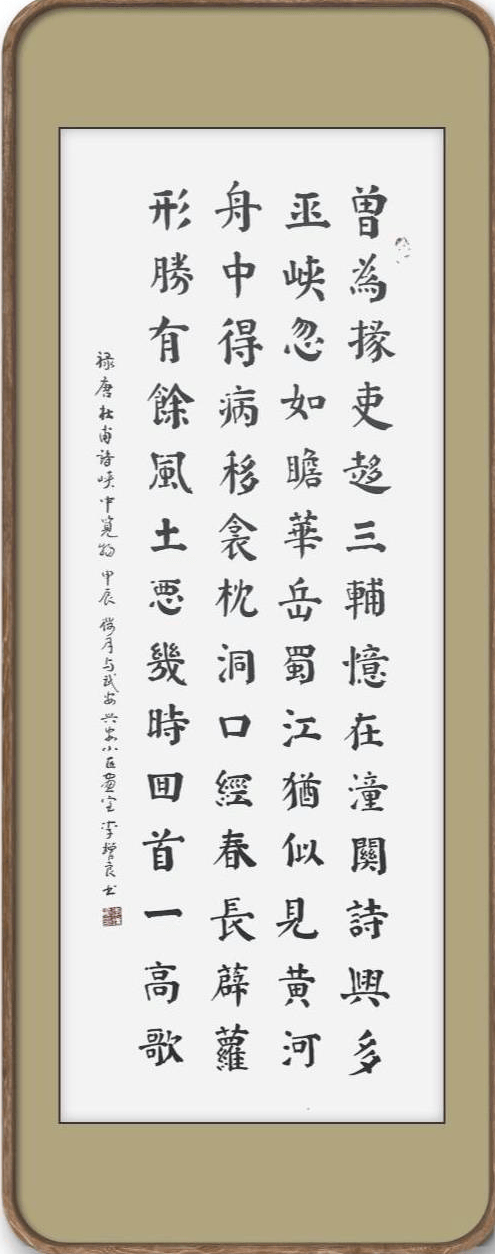 曾為掾吏趍三輔憶在潼關詩興多
巫峽忽如瞻華岳蜀江猶似見黄河
舟中得病移衾枕洞口經春長薜蘿
形勝有餘風土悪幾時囬首一高歌
禄唐杜甫詩峡中覽物 甲辰 月与武安兴安小区畫室 李增良书